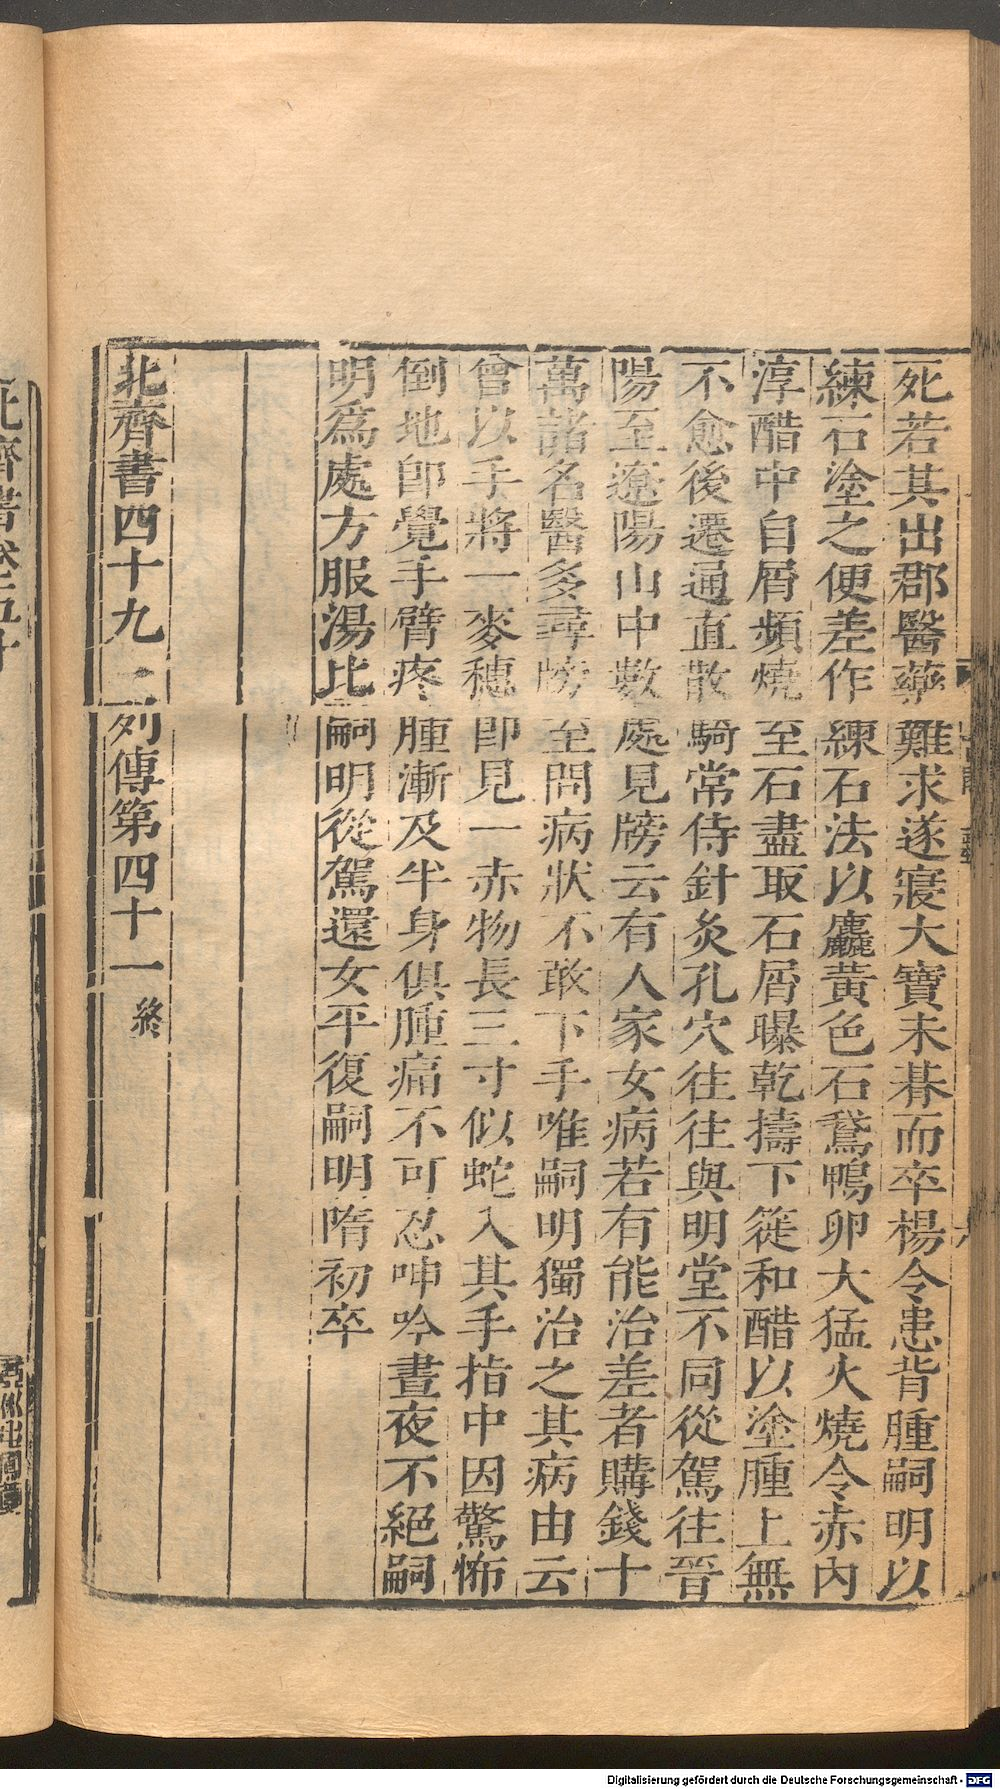 死若其出郡醫藥難求遂寢大寶未朞而卒楊令患背腫嗣明以
練石塗之便差作練石法以麤黃色石鵞鴨卵大猛火燒令赤內
淳醋中自屑頻燒至石盡取石屑曝乾擣下簁和醋以塗腫上無
不愈後遷通直散騎常侍針灸孔穴往往與明堂不同從駕往晉
陽至遼陽山中數處見牓云有人家女病若有能治差者購錢十
萬諸名醫多尋牓至問病狀不敢下手唯嗣明獨治之其病由云
曾以手將一麥穗即見一赤物長三寸似蛇入其手指中因驚怖
倒地卽覺手臂疼腫漸及半身俱腫痛不可忍呻吟晝夜不絕嗣
明爲處方服湯比嗣明從駕還女平復嗣明隋初卒
北齊書四十九　列傳第四十一終
北齊書卷五十
Digitalisierung gefördert durch die Deutsche Forschungsgemeinschaft - DFG